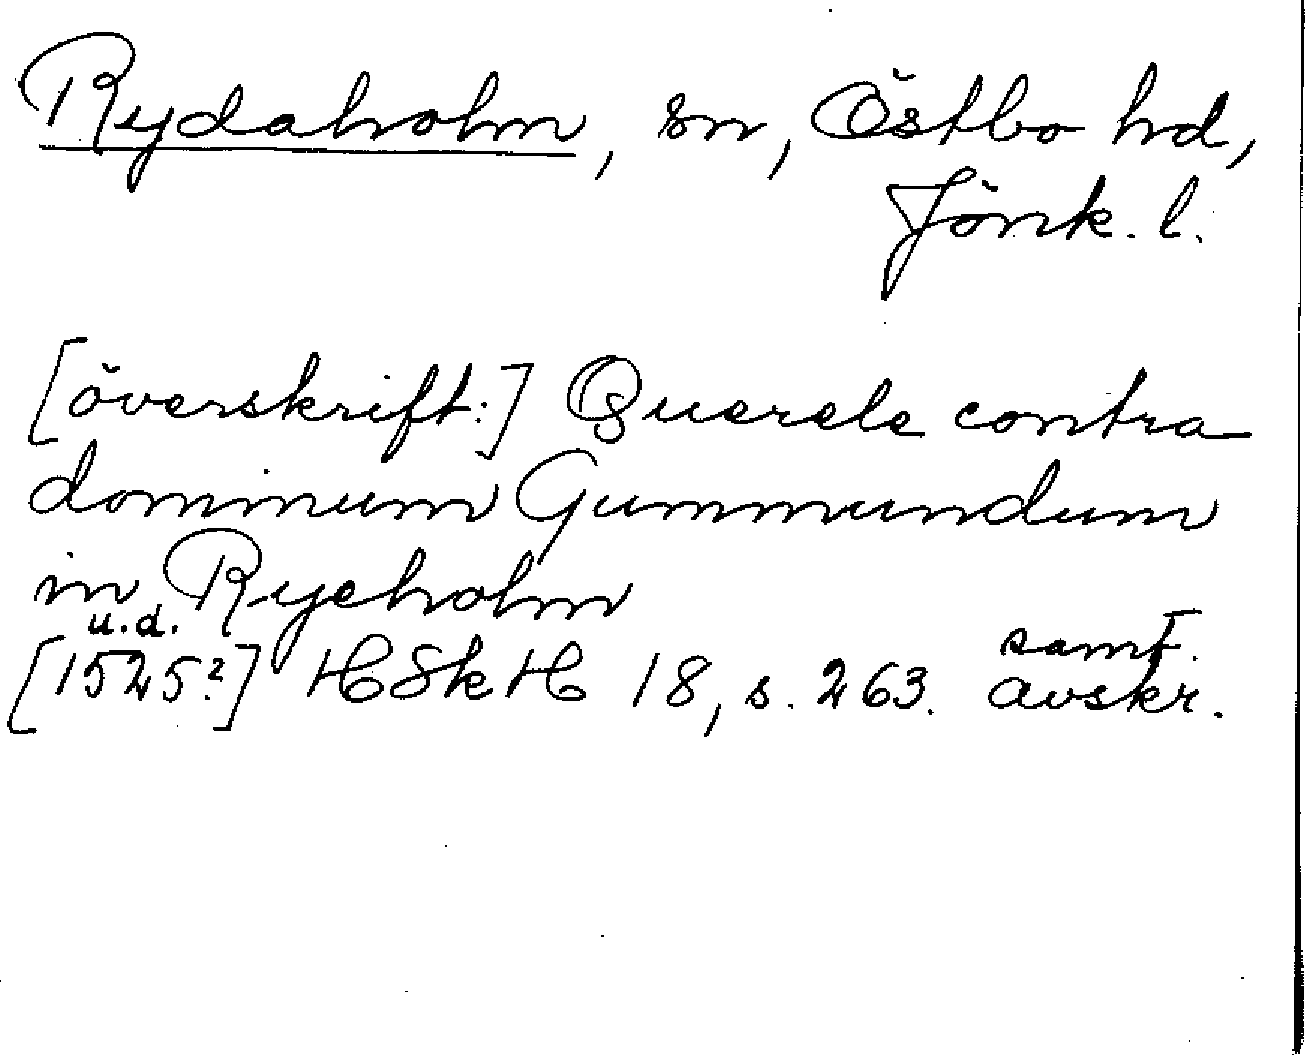 Rydaholm, sn, Östbo hd,
Jönk. l.
[överskrift:] Querele contra
dominum Gummundum
in Ryeholm
u.d.
[1525?] HSkH 18, s. 263. samt.
avskr.